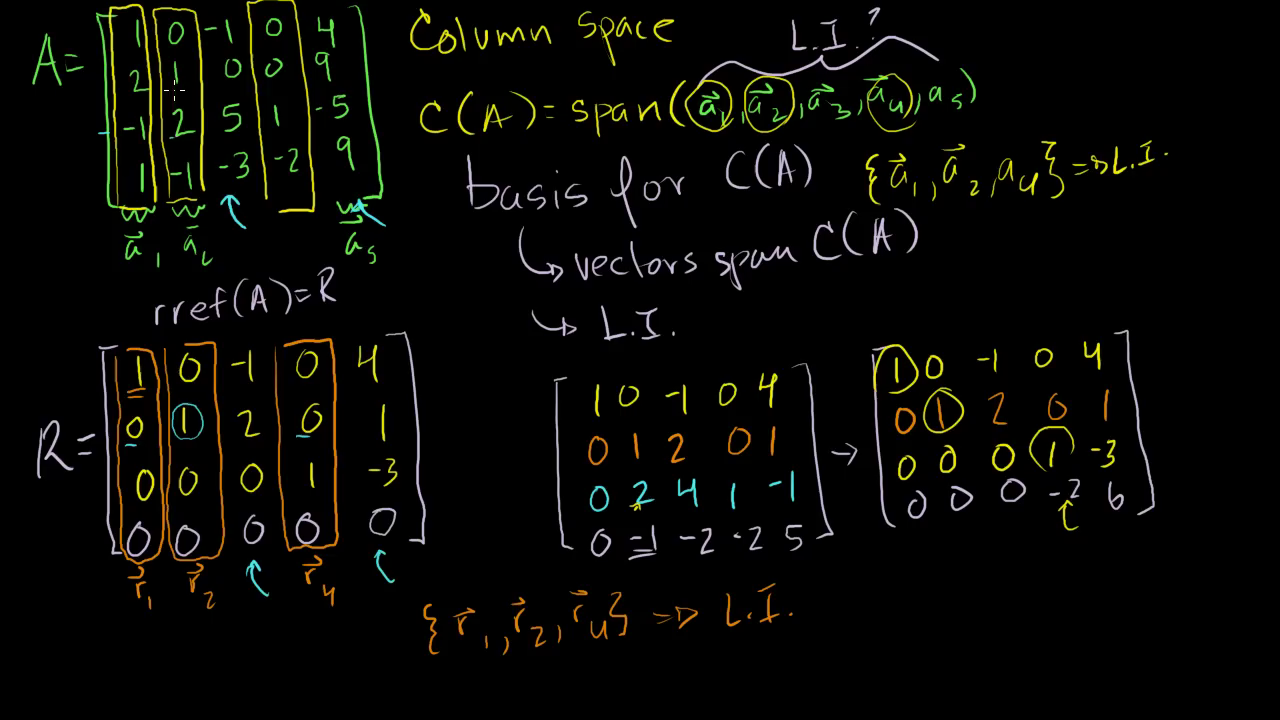 A = [ 1 0 -1 0 4
2 1 0 0 9
-1 2 5 1 -5
1 -1 -3 -2 9 ]
a⃗1 a⃗2 a⃗5
Column space
L.I.?
C(A) = span(a⃗1, a⃗2, a⃗3, a⃗4, a5)
basis for C(A)
{a⃗1, a⃗2, a4} => L.I.
↳ vectors span C(A)
↳ L.I.
rref(A) = R
R = [ 1 0 -1 0 4
0 1 2 0 1
0 0 0 1 -3
0 0 0 0 0 ]
r⃗1 r⃗2 r⃗4
[ 1 0 -1 0 4
0 1 2 0 1
0 2 4 1 -1
0 -1 -2 -2 5 ]
→ [ 1 0 -1 0 4
0 1 2 0 1
0 0 0 1 -3
0 0 0 -2 6 ]
{r⃗1, r⃗2, r⃗4} => L.I.